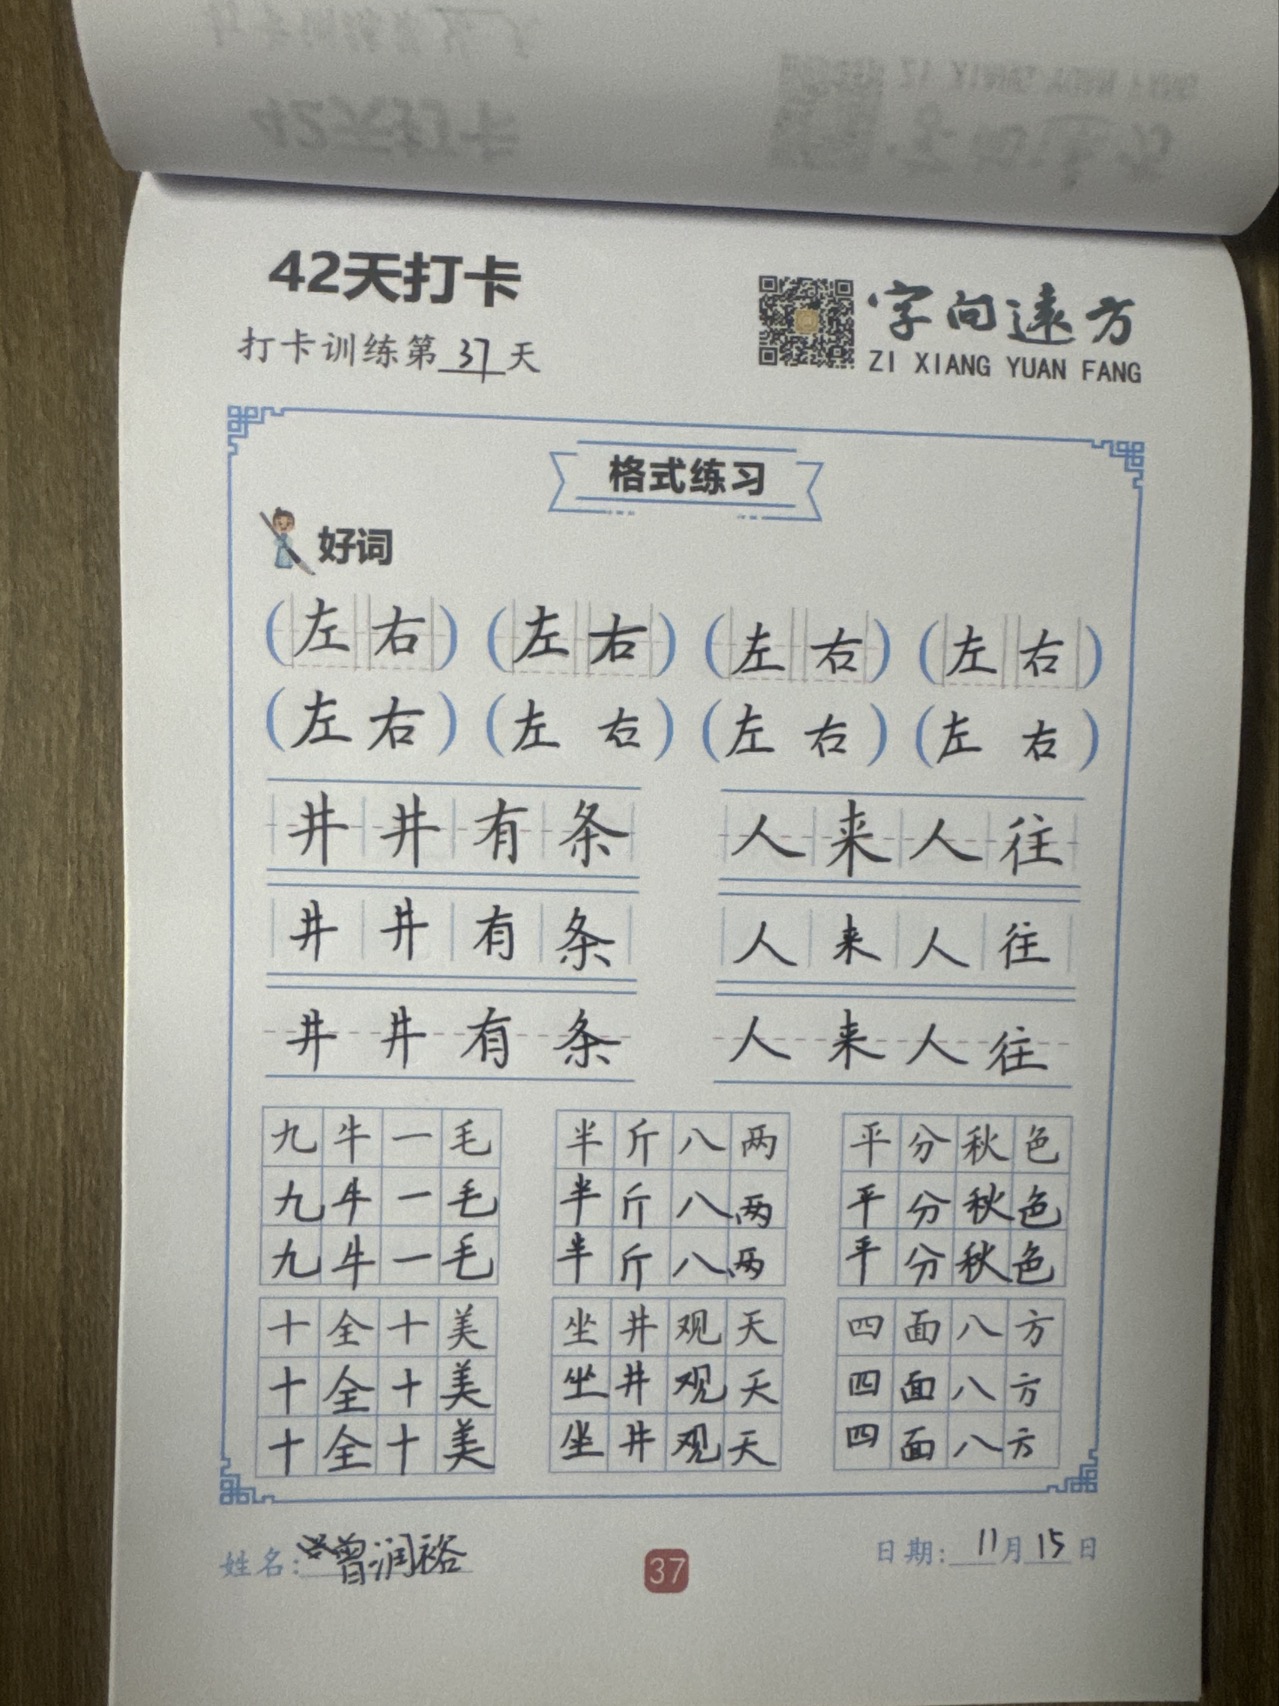 42天打卡
字向遠方
ZI XIANG YUAN FANG
42天打卡
打卡训练第37天
字向遠方
ZI XIANG YUAN FANG
格式练习
好词
(左右) (左右) (左右) (左右)
(左右) (左右) (左右) (左右)
井井有条 人来人往
井井有条 人来人往
井井有条 人来人往
九牛一毛 半斤八两 平分秋色
九牛一毛 半斤八两 平分秋色
九牛一毛 半斤八两 平分秋色
十全十美 坐井观天 四面八方
十全十美 坐井观天 四面八方
十全十美 坐井观天 四面八方
姓名: 曾润裕 37 日期: 11月15日